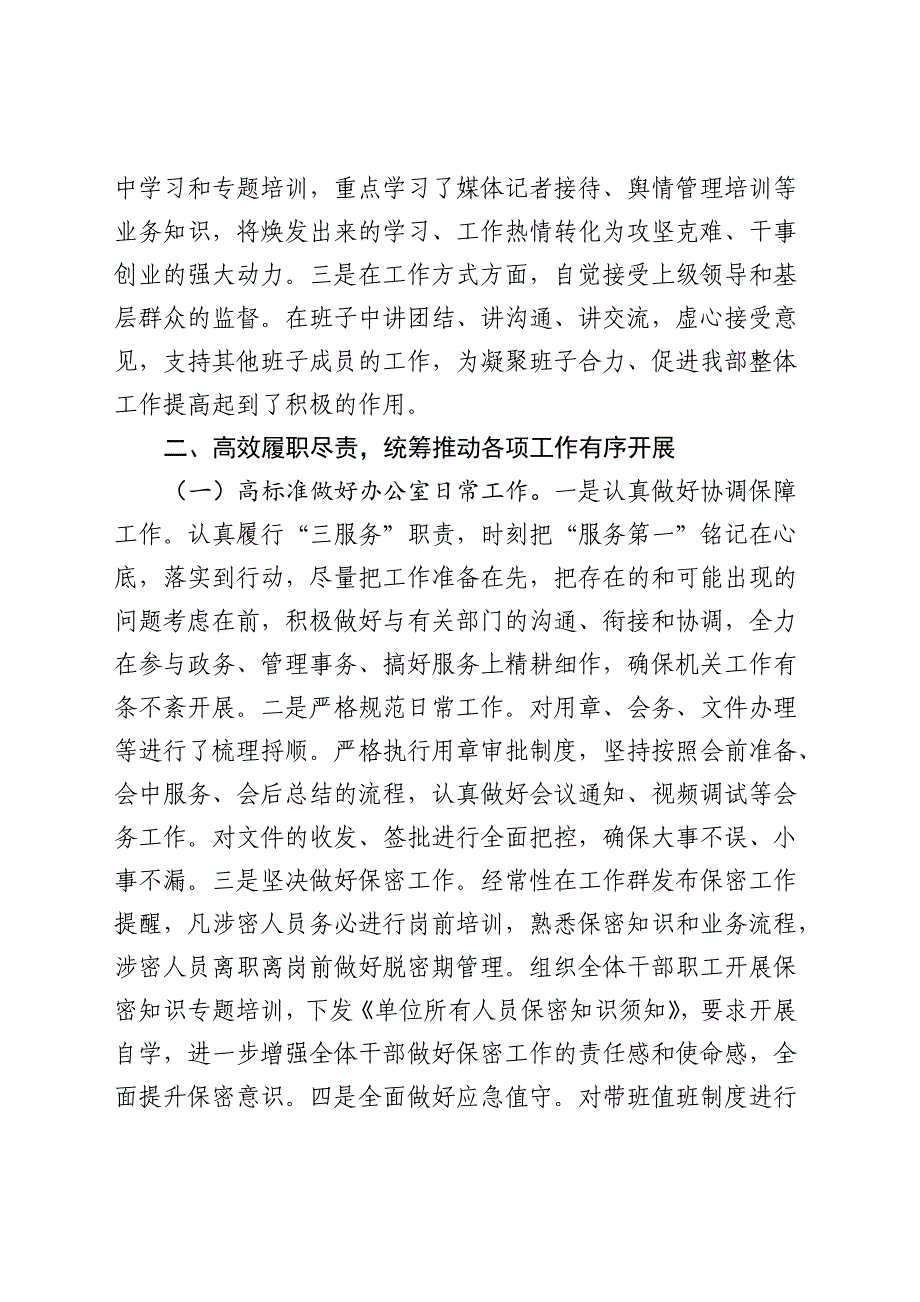 中学习和专题培训，重点学习了媒体记者接待、舆情管理培训等
业务知识，将焕发出来的学习、工作热情转化为攻坚克难、干事
创业的强大动力。三是在工作方式方面，自觉接受上级领导和基
层群众的监督。在班子中讲团结、讲沟通、讲交流，虚心接受意
见，支持其他班子成员的工作，为凝聚班子合力、促进我部整体
工作提高起到了积极的作用。
二、高效履职尽责，统筹推动各项工作有序开展
（一）高标准做好办公室日常工作。一是认真做好协调保障
工作。认真履行“三服务”职责，时刻把“服务第一”铭记在心
底，落实到行动，尽量把工作准备在先，把存在的和可能出现的
问题考虑在前，积极做好与有关部门的沟通、衔接和协调，全力
在参与政务、管理事务、搞好服务上精耕细作，确保机关工作有
条不紊开展。二是严格规范日常工作。对用章、会务、文件办理
等进行了梳理捋顺。严格执行用章审批制度，坚持按照会前准备、
会中服务、会后总结的流程，认真做好会议通知、视频调试等会
务工作。对文件的收发、签批进行全面把控，确保大事不误、小
事不漏。三是坚决做好保密工作。经常性在工作群发布保密工作
提醒，凡涉密人员务必进行岗前培训，熟悉保密知识和业务流程，
涉密人员离职离岗前做好脱密期管理。组织全体干部职工开展保
密知识专题培训，下发《单位所有人员保密知识须知》，要求开展
自学，进一步增强全体干部做好保密工作的责任感和使命感，全
面提升保密意识。四是全面做好应急值守。对带班值班制度进行